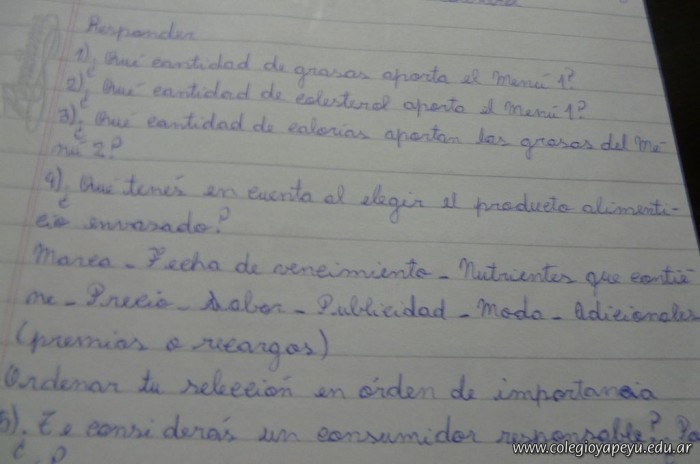 Responder
1) ¿Qué cantidad de grasas aporta el Menú 1?
2) ¿Qué cantidad de colesterol aporta el Menú 1?
3) ¿Qué cantidad de calorías aportan las grasas del Me-
nú 2?
4) ¿Qué tenés en cuenta al elegir el producto alimenti-
cio envasado?
Marca - Fecha de vencimiento - Nutrientes que contie-
ne - Precio - Sabor - Publicidad - Moda - Adicionales
(premios o recargos)
Ordenar tu selección en órden de importancia
5). ¿Te considerás un consumidor responsable? ¿Po
www.colegioyapeyu.edu.ar